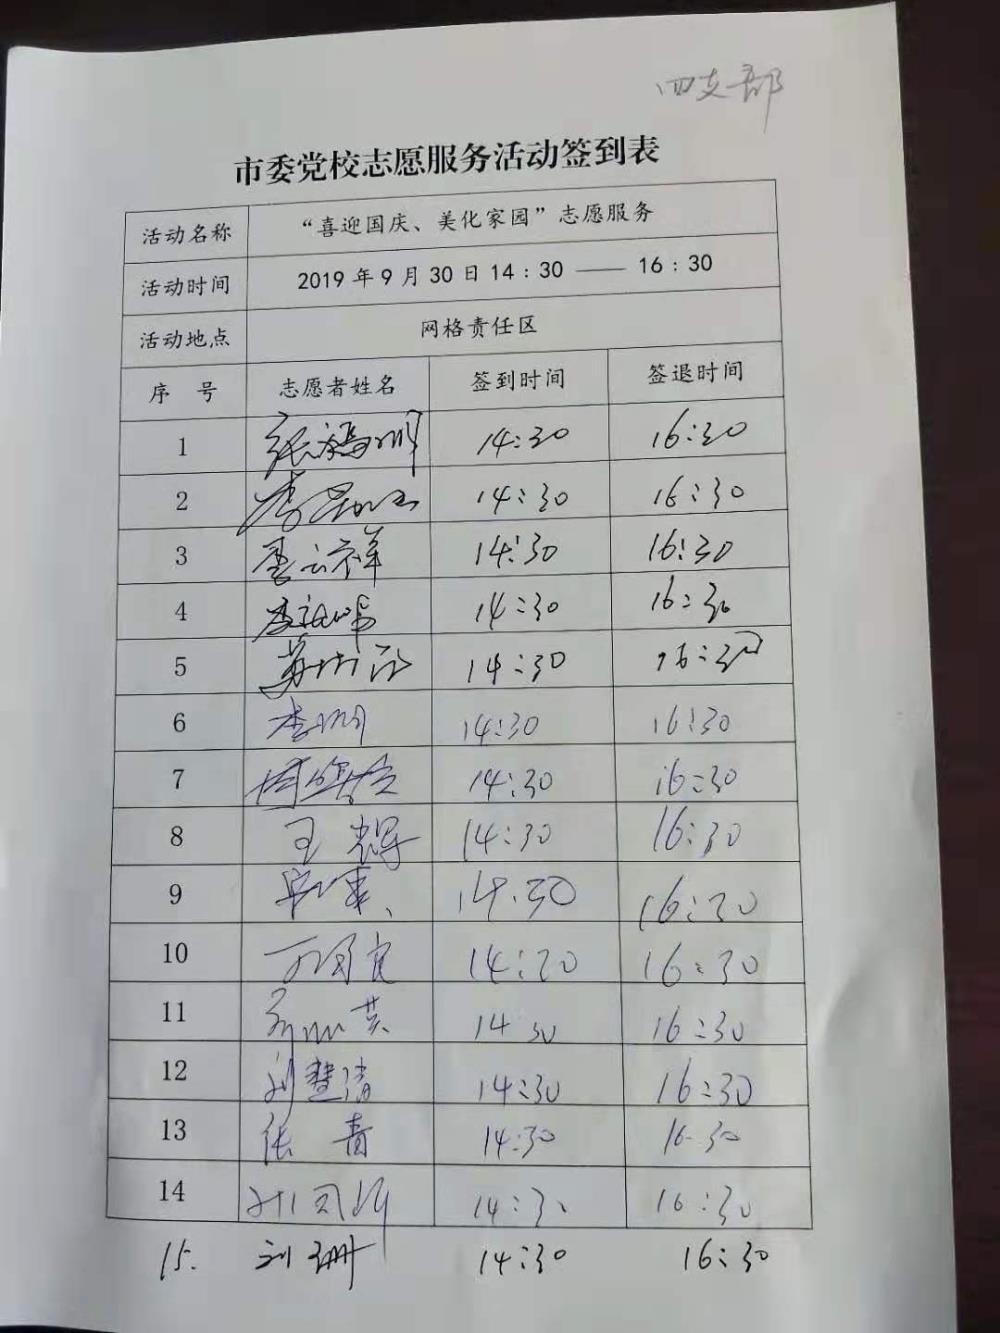 四支部
市委党校志愿服务活动签到表
活动名称 “喜迎国庆、美化家园”志愿服务
活动时间 2019年9月30日14:30——16:30
活动地点 网格责任区
序 号 志愿者姓名 签到时间 签退时间
1 14:30 16:30
2 李 14:30 16:30
3 云祥 14:30 16:30
4 14:30 16:30
5 14:30 16:30
6 李 14:30 16:30
7 14:30 16:30
8 王 辉 14:30 16:30
9 14:30 16:30
10 14:30 16:30
11 14 30 16:30
12 刘慧清 14:30 16:30
13 张 青 14:30 16:30
14 14:30 16:30
15. 刘珊 14:30 16:30